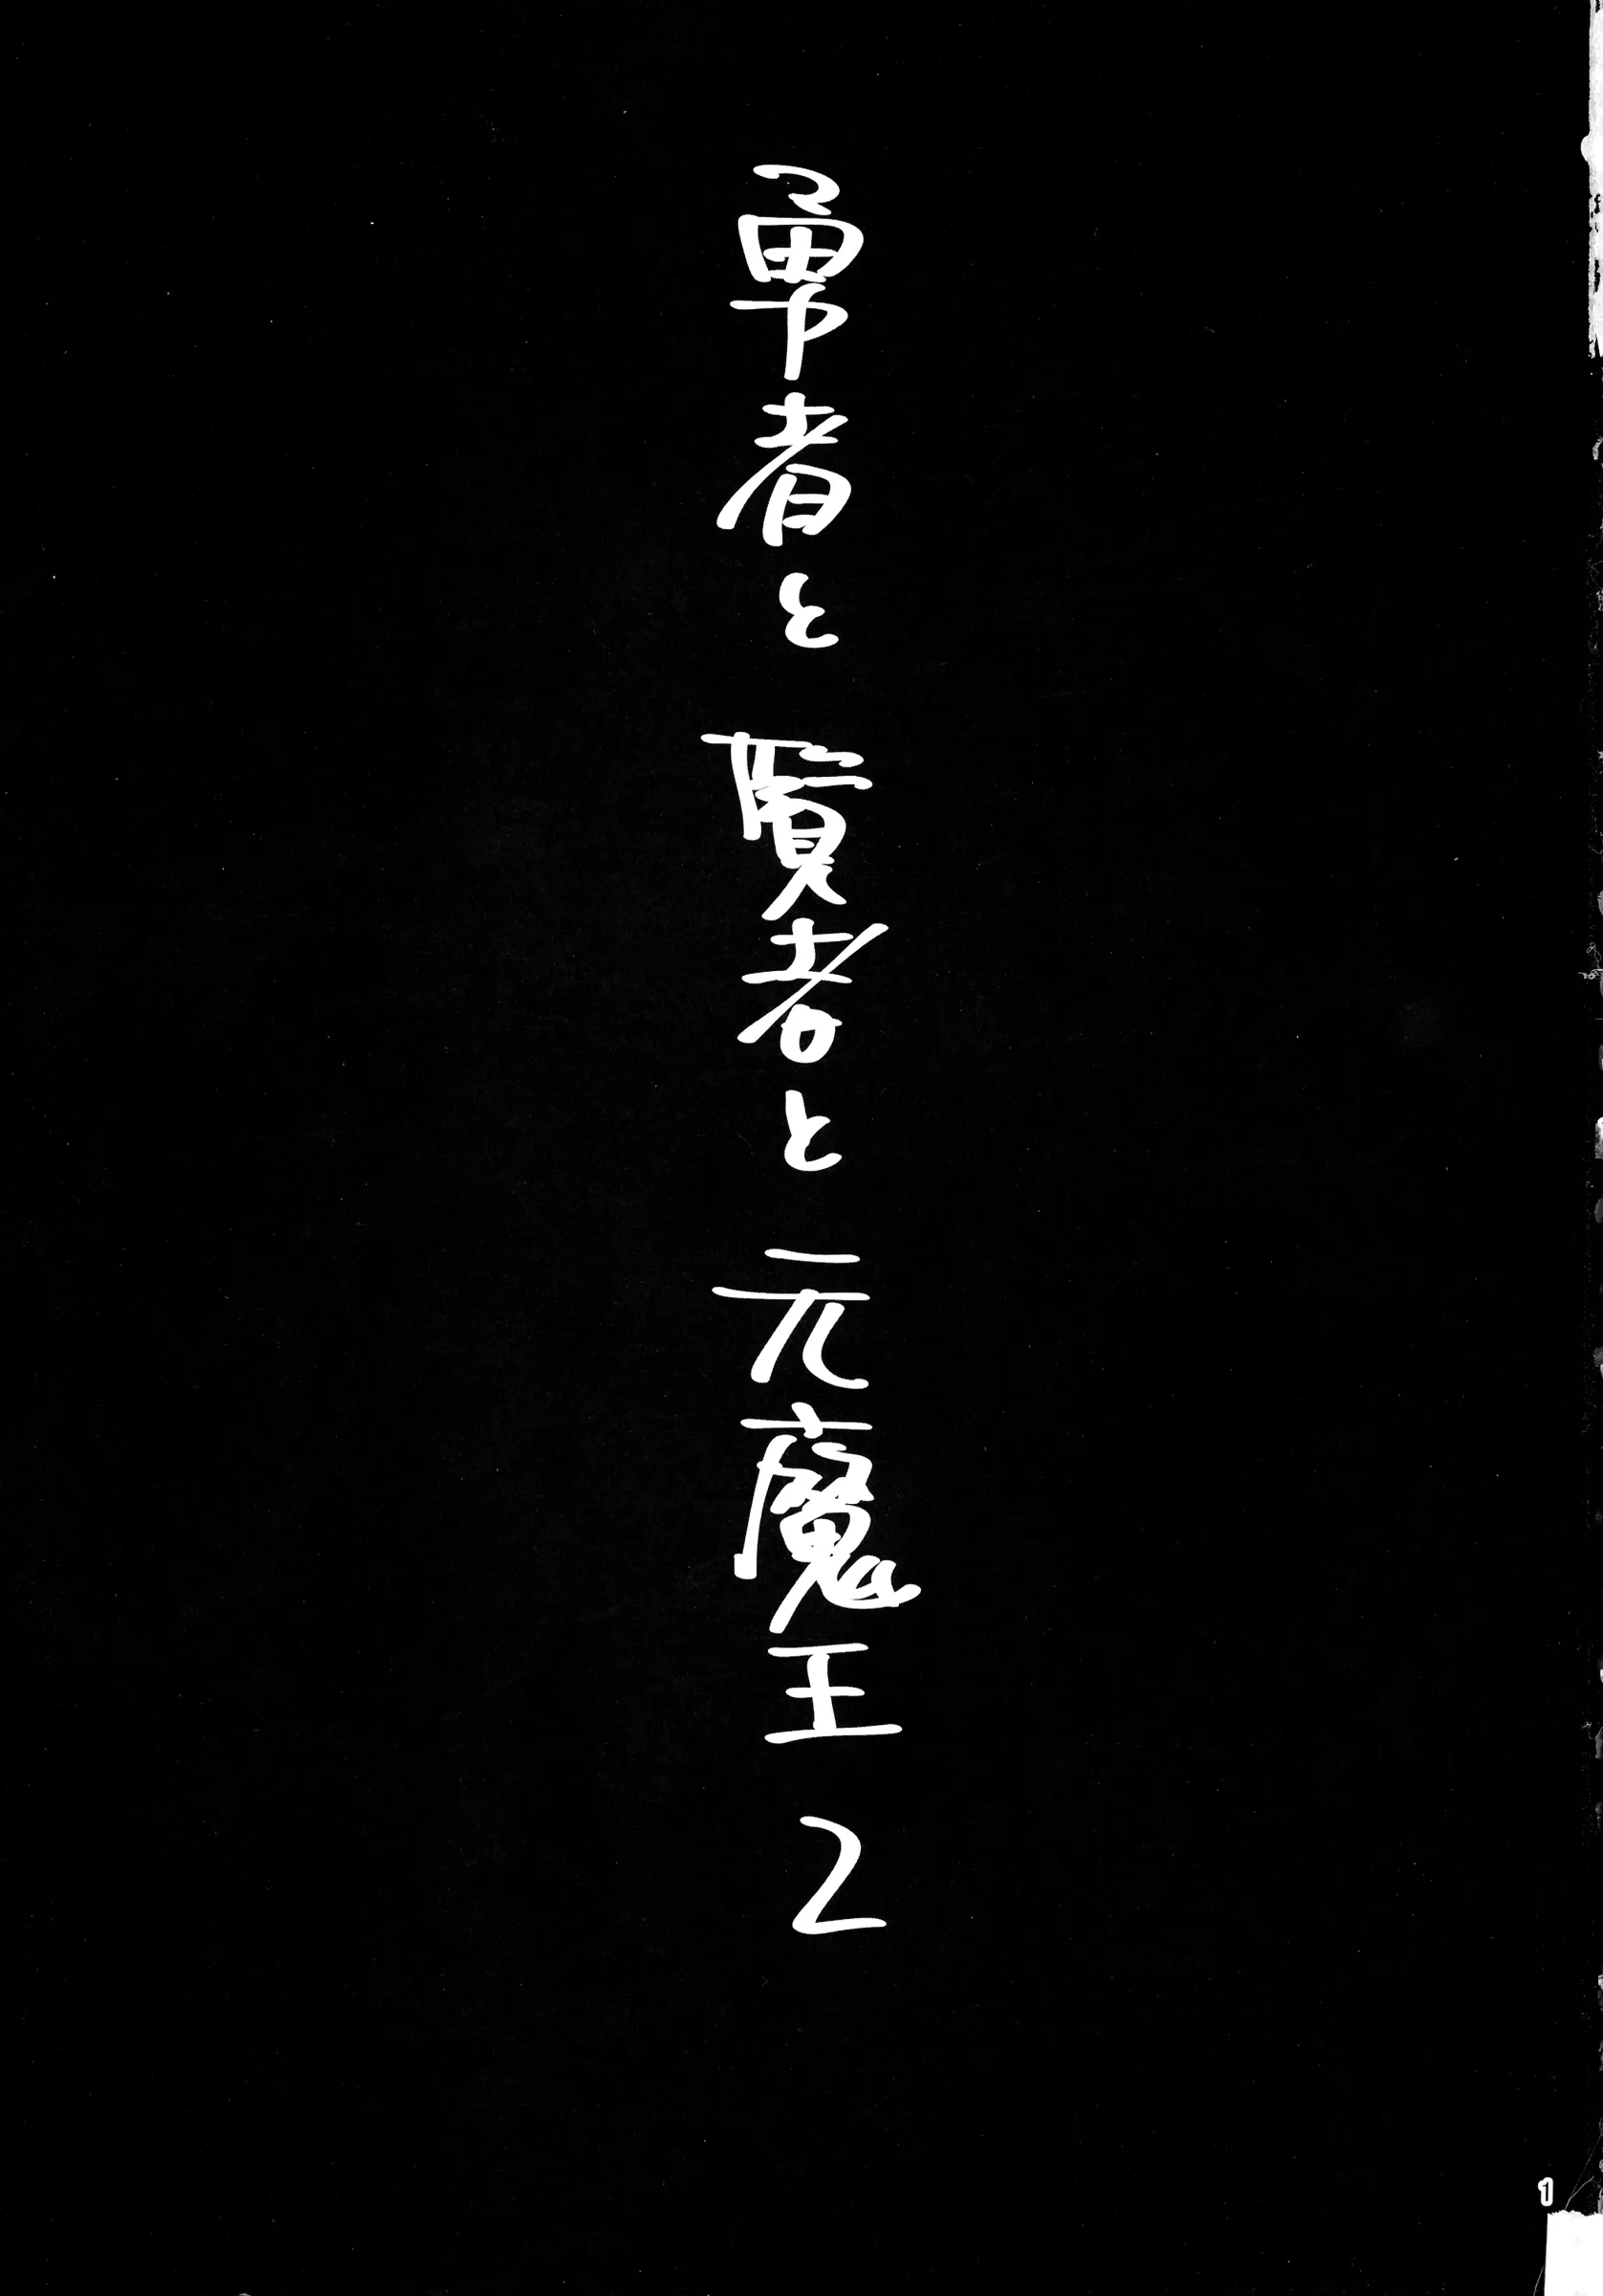 勇者と賢者と元魔王2
1